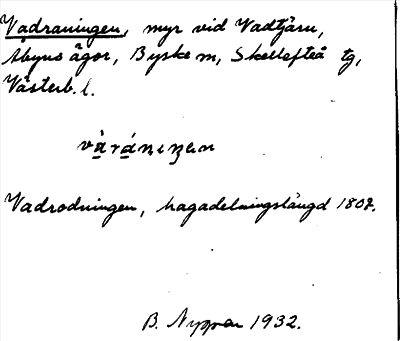 Vadraningen, myr vid Vadtjärn,
Åbyns ägor, Byske sn, Skellefteå tg,
Västerb. l.
Vadrodningen, hagadelningslängd 1807.
B. Nygren 1932.